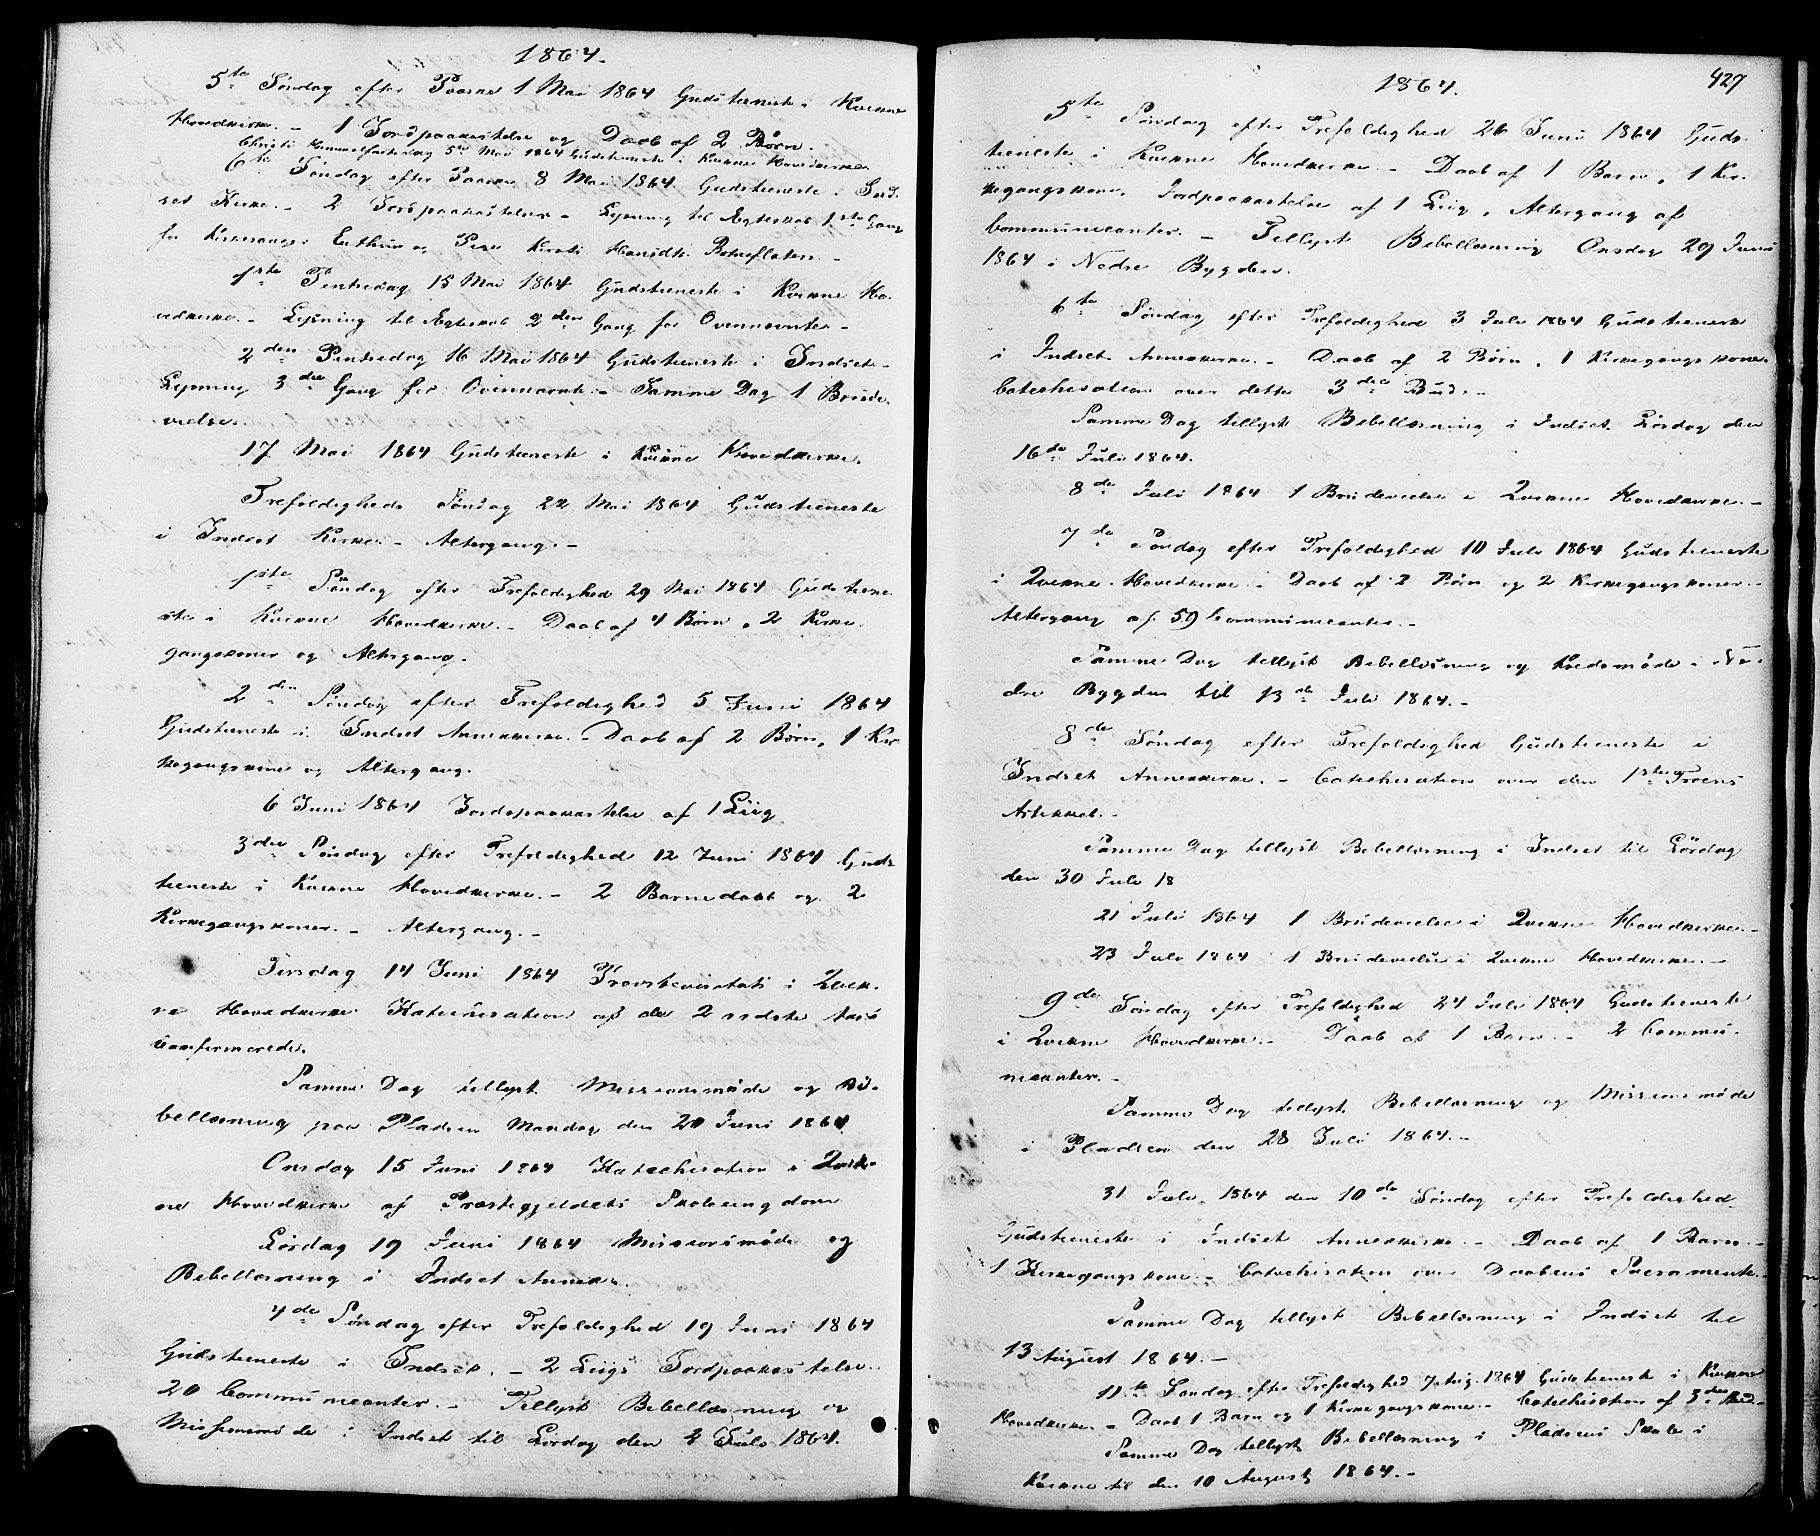 1864.
5te Søndag efter Paaske 1 Mai 1864 Gudstieneste i Kvikne
Hovedkirke. – 1 Jordpaakastelse og Daab af 2 Børn.
Christi Himmelfartsdag 5te Mai 1864 Gudstieneste i Kvikne Hovedkirke
6te Søndag efter Paaske 8 Mai 1864 Gudstieneste i Ind-
set Kirke. – 2 Jordpaakastelser – Lysning til Ægteskab 1ste Gang
for Kirkesanger og Pige Kirsti Hansdtr.
1ste Pintsedag 15 Mai 1864 Gudstieneste i Kvikne Ho-
vedkirke. – Lysning til Ægteskab 2den Gang for Ovennævnte –
2den Pintsedag 16 Mai 1864 Gudstieneste i Indset –
Lysning 3die Gang for Ovennævnte – Samme Dag 1 Brude-
vielse.
17 Mai 1864 Gudstieneste i Kvikne Hovedkirke.
Trefoldigheds Søndag 22 Mai 1864 Gudstieneste
i Indset Kirke. – Altergang. –
1ste Søndag efter Trefoldighed 29 Mai 1864 Gudstiene-
ste i Kvikne Hovedkirke. – Daab af 4 Børn, 2 Kirke-
gangskoner og Altergang.
2den Søndag efter Trefoldighed 5 Juni 1864
Gudstieneste i Indset Annexkirke. – Daab af 2 Børn, 1 Kir-
kegangskone og Altergang.
6 Juni 1864 Jordspaakastelse af 1 Liig.
3die Søndag efter Trefoldighed 12 Juni 1864 Guds-
tieneste i Kvikne Hovedkirke. – 2 Barnedaab og 2
Kirkegangskoner. – Altergang. –
Tirsdag 14 Juni 1864 Provstevisitats i Qvik-
ne Hovedkirke Katechisation af de 2 sidste Aars
Confirmerede.
Samme Dag tillyst Missionsmøde og Bi-
bellæsning paa Pladsen Mandag den 20 Juni 1864.
Onsdag 15 Juni 1864 Katechisation i Qvik-
ne Hovedkirke af Præstegjeldets Skoleungdom
Lørdag 19 Juni 1864 Missionsmøde og
Bibellæsning i Indset Annex.
4de Søndag efter Trefoldighed 19 Juni 1864
Gudstieneste i Indset. – 2 Liigs Jordpaakastelse.
20 Communicanter. – Tillyst Bibellæsning og
Missionsmøde i Indset til Lørdag den 2 Juli 1864.
1864.
427
5te Søndag efter Trefoldighed 26 Juni 1864 Guds-
tieneste i Kvikne Hovedkirke. – Daab af 1 Barn, 1 Kir-
kegangskone, Jordpaakastelse af 1 Liig, Altergang af
Communicanter. – Tillyst Bibellæsning Onsdag 29 Juni
1864 i Nedre Bygden.
6te Søndag efter Trefoldighed 3 Juli 1864 Gudstieneste
i Indset Annexkirke. – Daab af 2 Børn, 1 Kirkegangskone
Catechisation over dette 3die Bud. –
Samme Dag tillyst Bibellæsning i Indset Lørdag den
16de Juli 1864.
8de Juli 1864 1 Brudevielse i Qvikne Hovedkirke. –
7de Søndag efter Trefoldighed 10 Juli 1864 Gudstieneste
i Qvikne Hovedkirke. Daab af 2 Børn og 2 Kirkegangskoner –
Altergang af 59 Communicanter. –
Samme Dag tillyst Bibellæsning og Kredsmøde i Ne-
dre Bygden til 13de Juli 1864. –
8de Søndag efter Trefoldighed Gudstieneste i
Indset Annexkirke. – Catechisation over den 1ste Troens
Artikkel. –
Samme Dag tillyst Bibellæsning i Indset til Lørdag
den 30 Juli 18
21 Juli 1864 1 Brudevielse i Qvikne Hovedkirke. –
23 Juli 1864 1 Brudevielse i Qvikne Hovedkirke. –
9de Søndag efter Trefoldighed 24 Juli 1864 Gudstieneste
i Qvikne Hovedkirke. – Daab af 1 Barn. – 2 Commu-
nicanter. –
Samme Dag tillyst Bibellæsning og Missionsmøde
i Pladsen den 28 Juli 1864. –
31 Juli 1864 den 10de Søndag efter Trefoldighed
Gudstieneste i Indset Annexkirke. – Daab af 1 Barn. –
1 Kirkegangskone. – Catechisation over Daabens Sacramente. –
Samme Dag tillyst Bibellæsning i Indset til
13 August 1864. –
11te Søndag efter Trefoldighed 7 Aug. 1864 Gudstieneste i Kvikne
Hovedkirke – Daab 1 Barn og 1 Kirkegangskone. – Catechisation af 3die Bud. –
Samme Dag tillyst Bibellæsning i Pladsens Skole i
Kvikne til den 10 August 1864. –